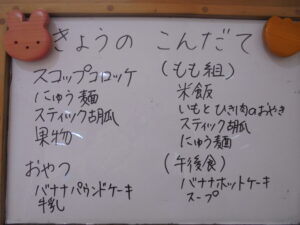 きょうの こんだて
スコップコロッケ
にゅう麺
スティック胡瓜
果物
おやつ
バナナパウンドケーキ
牛乳
(もも組)
米飯
いもとひき肉のおやき
スティック胡瓜
にゅう麺
(午後食)
バナナホットケーキ
スープ